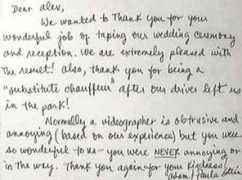 Dear Alex,
We wanted to Thank you for your
wonderful job of taping our wedding ceremony
and reception. We are extremely pleased with
the result! Also, thank you for being a
"substitute chauffeur" after our driver left us
in the park!
Normally a videographer is obtrusive and
annoying (based on our experience) but you were
so wonderful to us - you were NEVER annoying or
in the way. Thank you again for your kindness!
Adam / Paula